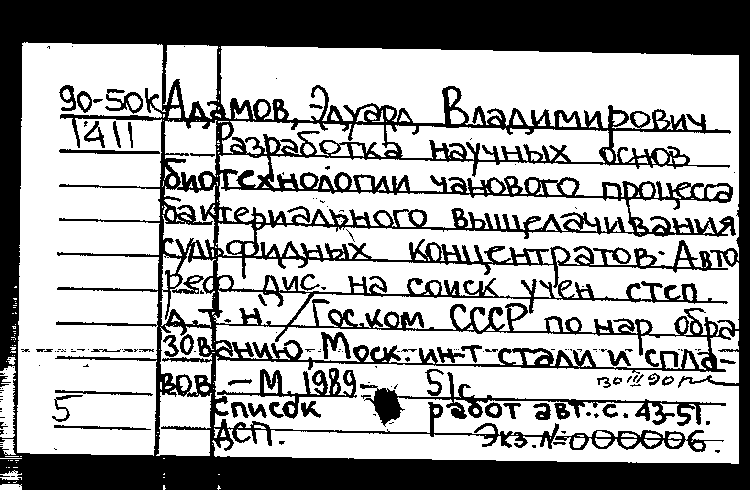 90-50к Адамов, Эдуард Владимирович
1411 Разработка научных основ
биотехнологии чанового процесса
бактериального выщелачивания
сульфидных концентратов: Авто
реф. дис. на соиск учен степ.
д. т. н. / Гос. ком. СССР по нар. обра
зованию, Моск. ин-т стали и спла-
вов. – М., 1989 – 51с.
5 Список работ авт.: с. 43-51.
ДСП. Экз. №000006.